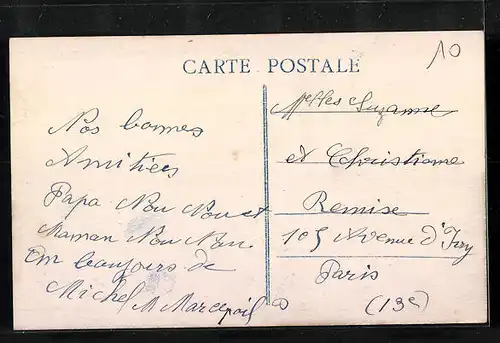 10
CARTE POSTALE
Nos bonnes
Amitiées
Papa Nou Nou et
Maman Nou Nou
Un bonjours de
Michel M
Melles Suzanne
et Christiane
Remise
105 Avenue d'Ivry
Paris
(13e)